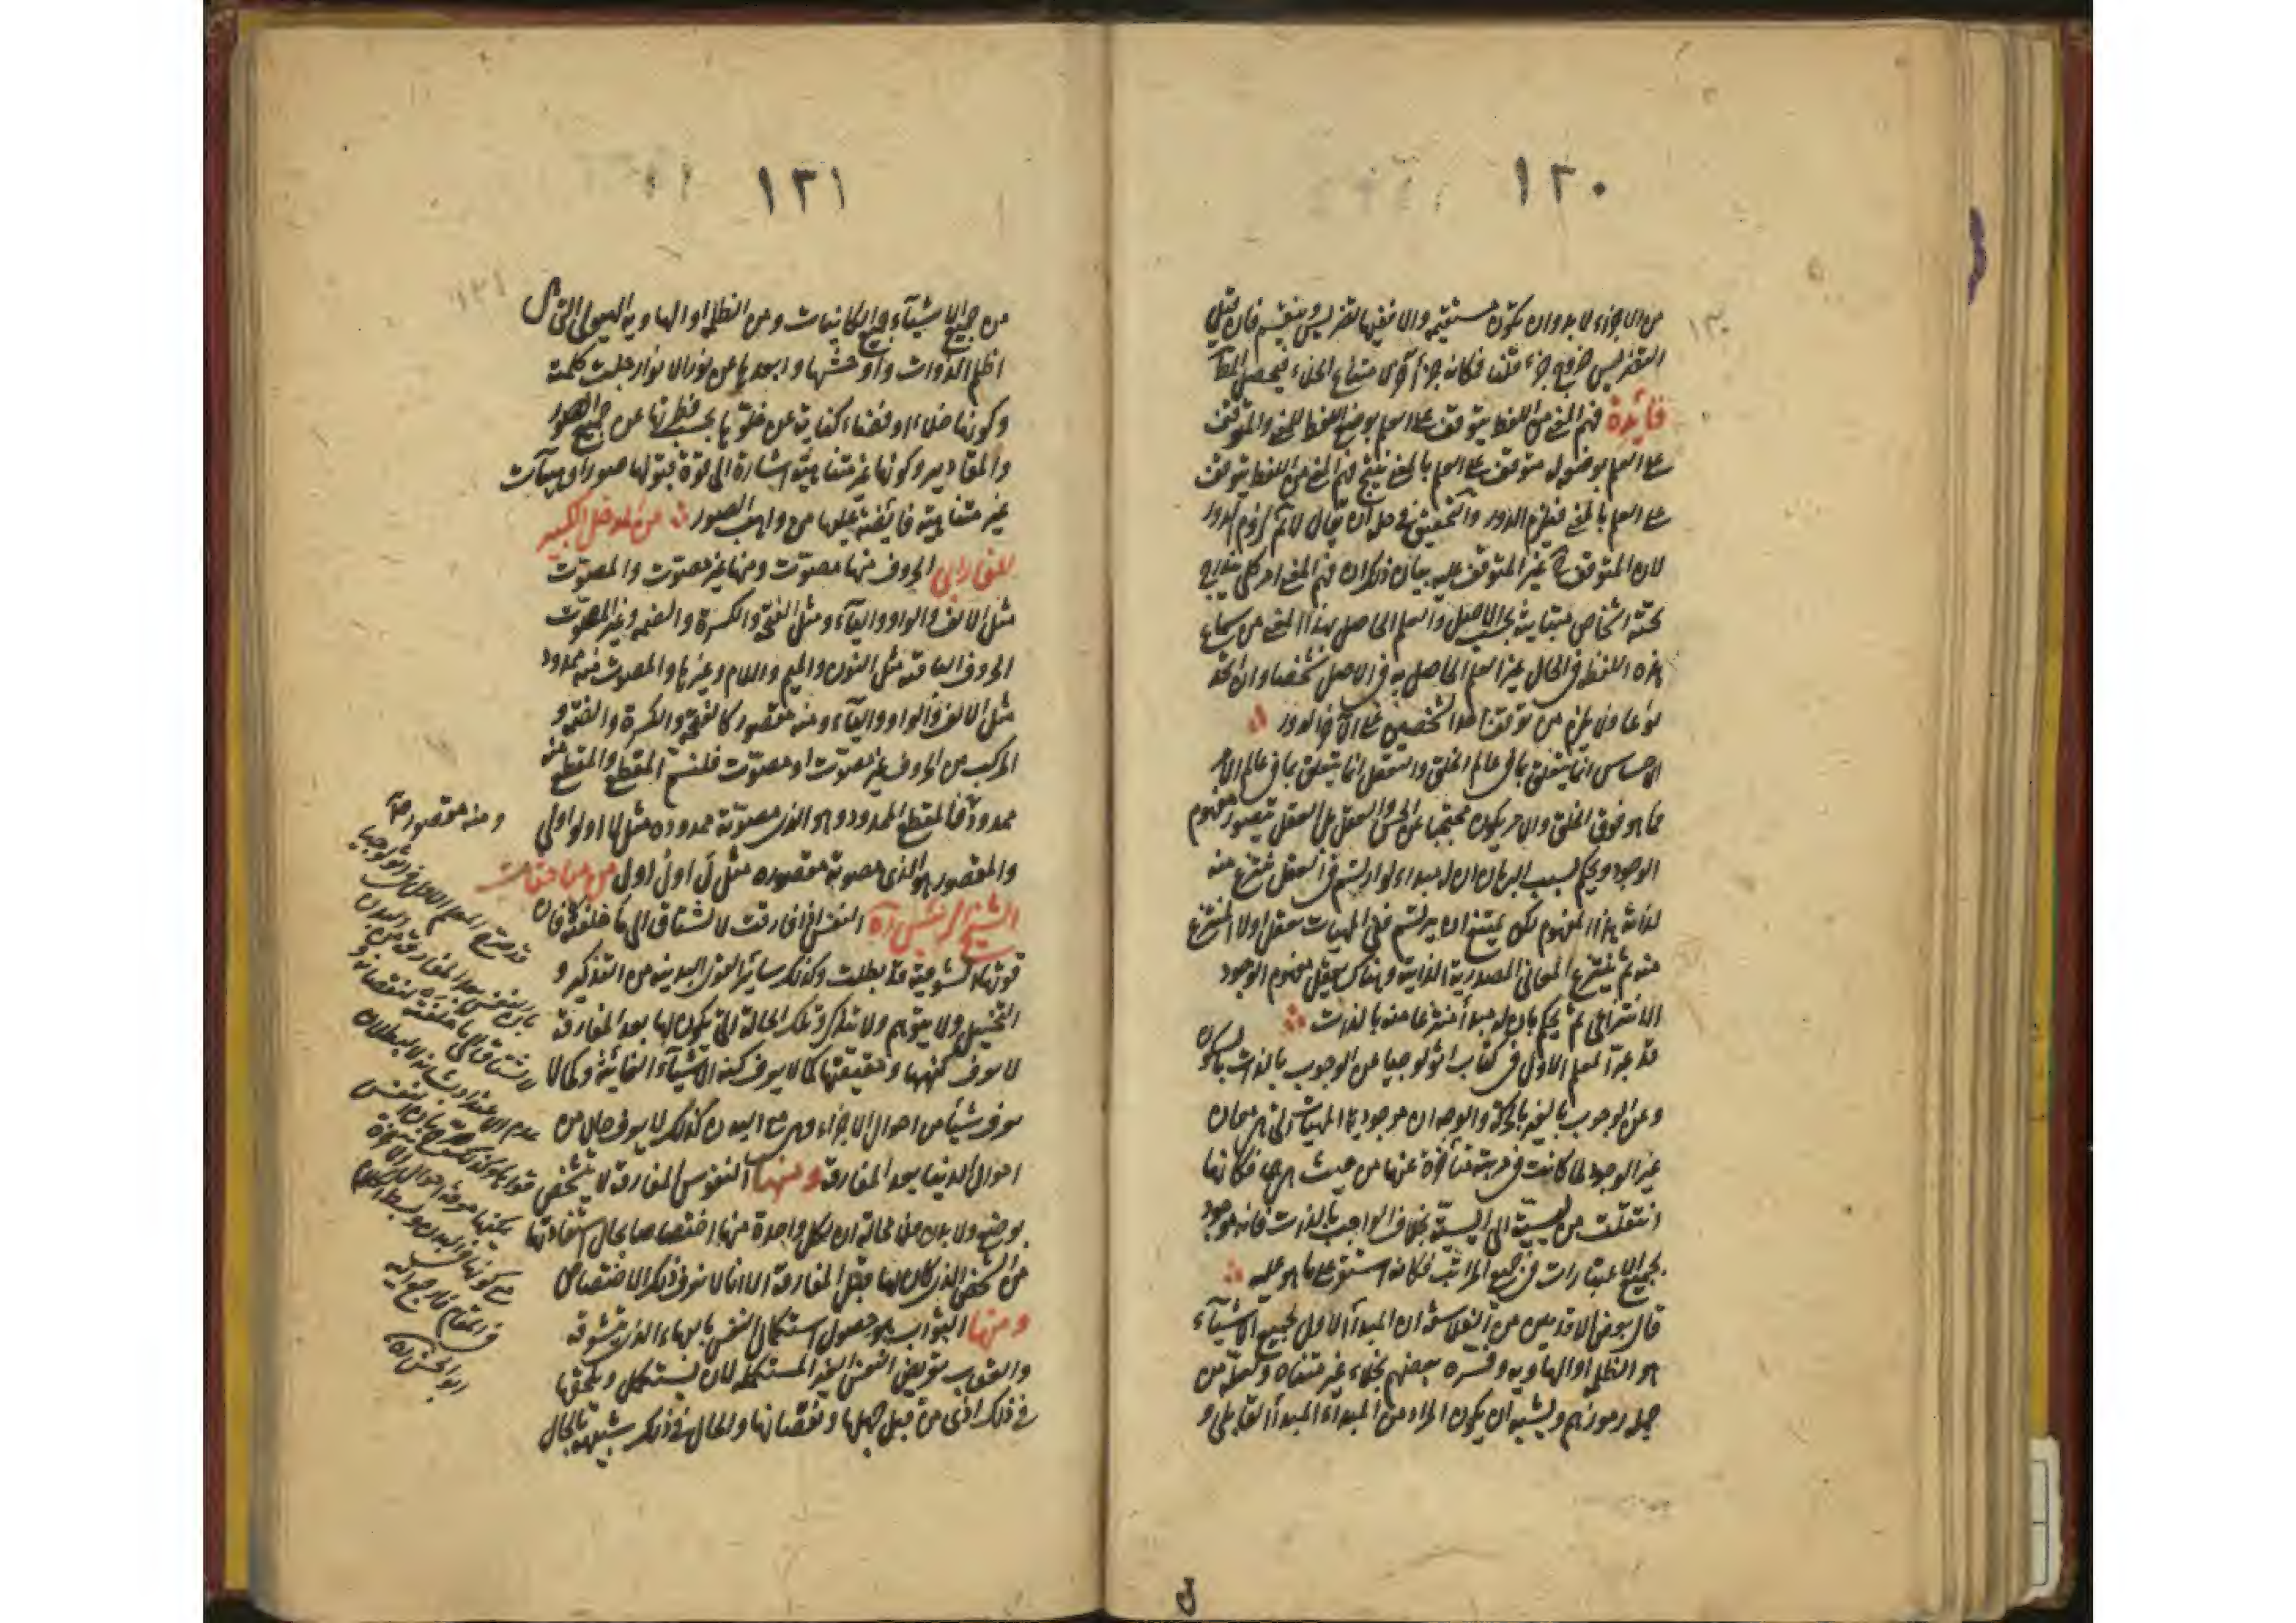 ١٣٠
من الاجزاء لا بد وان يكون مستقيمة والا نفيها تقريس وينقسم فان قيل
التقريس جزء فكانه جزء آخر
فائدة فهم المعنى من اللفظ يتوقف على العلم بوضع اللفظ للمعنى والمتوقف
على العلم بوضعه له متوقف على العلم بالمعنى ينتج فهم المعنى من اللفظ يتوقف
على العلم بالمعنى فيلزم الدور والتحقيق في حله ان يقال لا نم لزوم الدور
لان المتوقف ح غير المتوقف عليه بيان ذلك ان فهم المعنى امر كلي يندرج
تحته اشخاص متباينة بحسب الاصل والعلم الحاصل بهذا المعنى من سماع
هذه اللفظ في الحال غير العلم الحاصل به في الاصل شخصا وان اتحد
نوعا ولا يلزم من توقف احد الشخصين على الآخر الدور
الاحساس انما يتعلق بما في عالم الخلق والتعقل انما يتعلق بما في عالم الامر
فما هو فوق الخلق والامر يكون محتجبا عن الحس والعقل بل العقل يتصور مفهوم
الوجود ويحكم بسبب البرهان ان له مبداء لو ارتسم في العقل ينتزع منه
لذاته هذا المفهوم لكن يمتنع ان يرتسم ففي المهيات يعقل اولا المنتزع
منه ثم ينتزع المعاني المصدرية الذاتية وهناك يعقل مفهوم الوجود
الانتزاعي ثم يحكم بان له مبدأ منتزعا منه بالذات
قد عبر المعلم الاول في كتاب اثولوجيا عن الوجوب بالذات بالسكون
وعن الوجوب بالغير بالحركة والوجه ان موجودية المهيات التي هي معان
غير الوجود لما كانت في مرتبة متأخرة عنها من حيث هي هي فكانها
انتقلت من ليسية الى ايسية بخلاف الواجب بالذات فانه موجود
بجميع الاعتبارات في جميع المراتب فكانه استقر على ما هو عليه
قال بعض الاقدمين من الفلاسفة ان المبدأ الاول لجميع الاشياء
هو الظلمة او الهاوية وفسره بعضهم بخلاء غير متناه ولعله من
جملة رموزهم ويشبه ان يكون المراد من المبداء المبدأ القابلي و
١٣١
من جميع الاشياء جميع الكائنات ومن الظلمة او الهاوية الهيولى التي هي
اظلم الذوات واوحشها وابعدها عن نور الانوار جلت كلمته
وكونها خلاء او فضاء كناية عن خلوها بحسب فطرتها عن جميع الصور
والمقادير وكونها غير متناهية اشارة الى قوة قبولها صورا وهيآت
غير متناهية فائضة عليها من واهب الصور من المدخل الكبير
للفارابي الحروف منها مصوت ومنها غير مصوت والمصوت
مثل الالف والواو والياء ومثل الفتحة والكسرة والضمة وغير المصوت
الحروف الباقية مثل النون والميم واللام وغيرها والمصوت منه ممدود
مثل الالف والواو والياء ومنه مقصور كالفتحة والكسرة والضمة و
المركب من الحروف غير مصوت او مصوت فلنسم المقطع والمقطع منه
ممدود فالمقطع الممدود وهو الذي مصوته ممدوده مثل لا او لو او لي
والمقصور هو الذي مصوته مقصوره مثل لَ او لُ او لِ من مباحثات
الشيخ الرئيس ره النفس اذا فارقت لا تشتاق الى ما خلفته فان
قوتها الشوقية قد بطلت وكذلك سائر القوى البدنية من التذكير و
التخييل ولا يتوهم ولا يتذكر وتلك الحالة التي يكون لها بعد المفارقة
لا يعرف كنهها وحقيقتها كما لا يعرف كنه الاشياء الغائبة وكما لا
يعرف شيئا من احوال الاجزاء وهي مع البدن كذلك لا يعرف حال من
احوال الدنيا بعد المفارقة ومنها النفوس المفارقة لا يتشخص
بوضع ولا بدن ومن محاله ان لكل واحدة منها اختصاصا بحال استفادتها
من الشخص الذي كان لها قبل المفارقة الا انا لا نعرف ذلك الاختصاص
ومنها الثواب هو حصول استكمال النفس بالبهاء الذي تتشوقه
والعقاب تعريض النفس الغير المستكملة لان يستكمل ويلحقها
في ذلك اذى من قبل جهلها ونقصانها والحال في ذلك شبيهة بالحال
ومنه مقصور صح
قد صرح المعلم الاول في اثولوجيا
بان النفس بعد المفارقة من البدن
لا تشتاق الى ما خلفته
قواها وكذلك صرح بان النفس
يمكنها معرفة احوال الآخرة
مع كونها في البدن وبسط الكلام
في المقام فارجع اليه
ابو الحسن ره